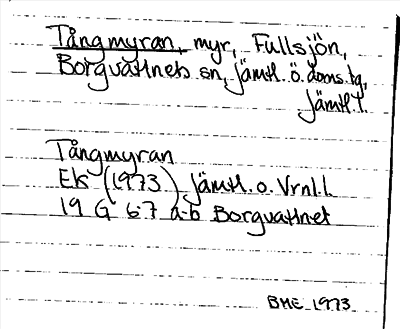 Tångmyran, myr, Fullsjön,
Borgvattnets sn, Jämtl. ö. doms. tg,
Jämtl. l.
Tångmyran
EK (1973) Jämtl. o. Vrnl. l.
19 G 6-7 a-b Borgvattnet
BME 1973